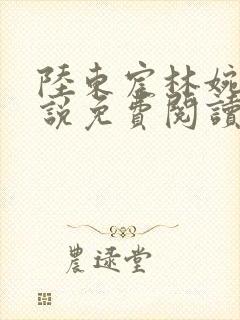 陸東宦林婉
說免費閱讀
農逯堂